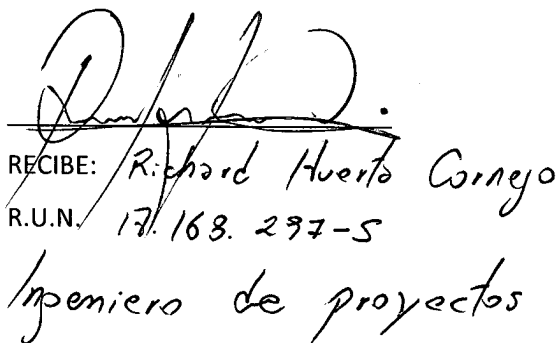 RECIBE: Richard Huerta Cornejo
R.U.N. 17.168.297-5
Ingeniero de proyectos